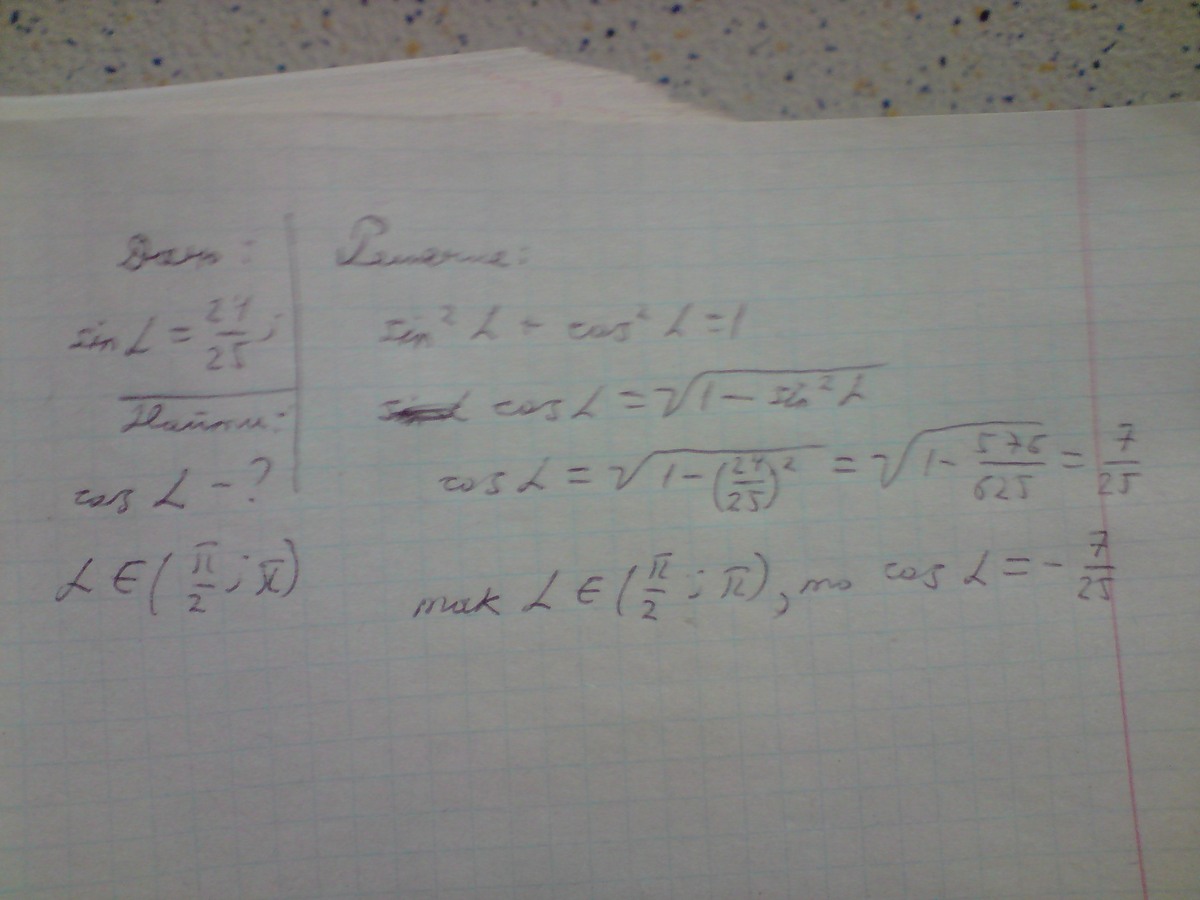 Дано:
sin α = 24/25;
Найти:
cos α - ?
α ∈ (π/2; π)
Решение:
sin² α + cos² α = 1
cos α = √(1 - sin² α)
cos α = √(1 - (24/25)²) = √(1 - 576/625) = 7/25
так α ∈ (π/2; π), то cos α = - 7/25